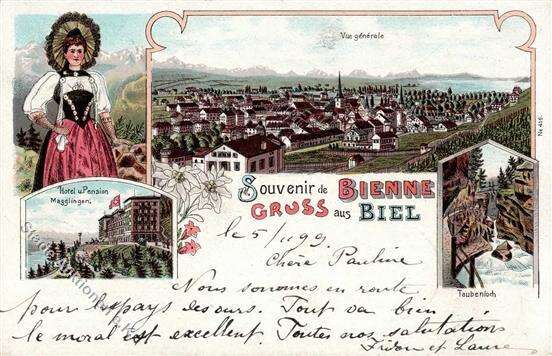 Vue générale
Nr. 416.
Hotel u. Pension
Magglingen.
Souvenir de BIENNE
GRUSS aus BIEL
Taubenloch
le 5/11 99
Chère Pauline
Nous sommes en route
pour le pays des ours. Tout va bien
le moral est excellent. Toutes nos salutations
et Laure